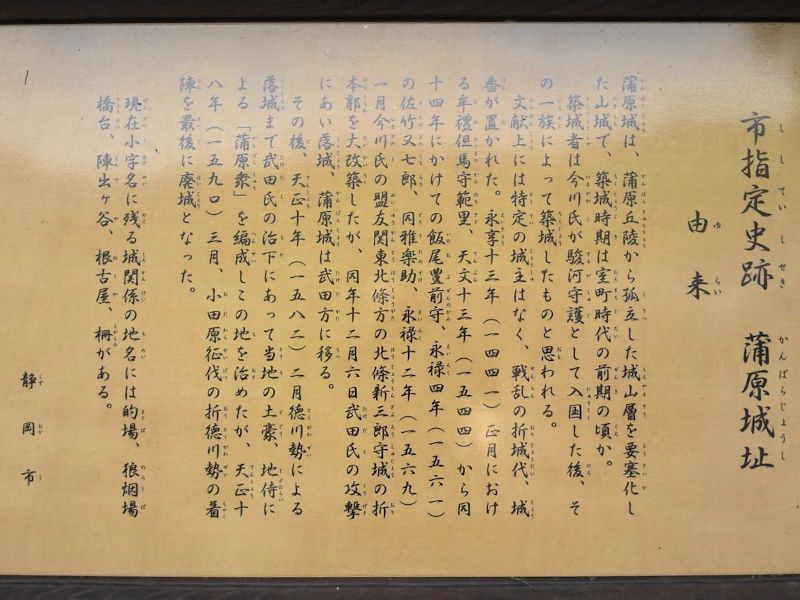 市指定史跡　蒲原城址
由来
蒲原城は、蒲原丘陵から孤立した城山層を要塞化し
た山城で、築城時期は室町時代の前期の頃か。
築城者は今川氏が駿河守護として入国した後、そ
の一族によって築城したものと思われる。
文献上には特定の城主はなく、戦乱の折城代、城
番が置かれた。永享十三年（一四四一）正月におけ
る年禮但馬守範里、天文十三年（一五四四）から同
十四年にかけての飯尾豊前守、永禄四年（一五六一）
の佐竹又七郎、同雅楽助、永禄十二年（一五六九）
一月今川氏の盟友関東北條方の北條新三郎守城の折
本郭を大改築したが、同年十二月六日武田氏の攻撃
にあい落城、蒲原城は武田方に移る。
その後、天正十年（一五八二）二月徳川勢による
落城まで武田氏の治下にあって当地の土豪、地侍に
よる「蒲原衆」を編成しこの地を治めたが、天正十
八年（一五九〇）三月、小田原征伐の折徳川勢の着
陣を最後に廃城となった。
現在小字名に残る城関係の地名には的場、狼烟場
橋台、陣出ヶ谷、根古屋、柵がある。
静岡市